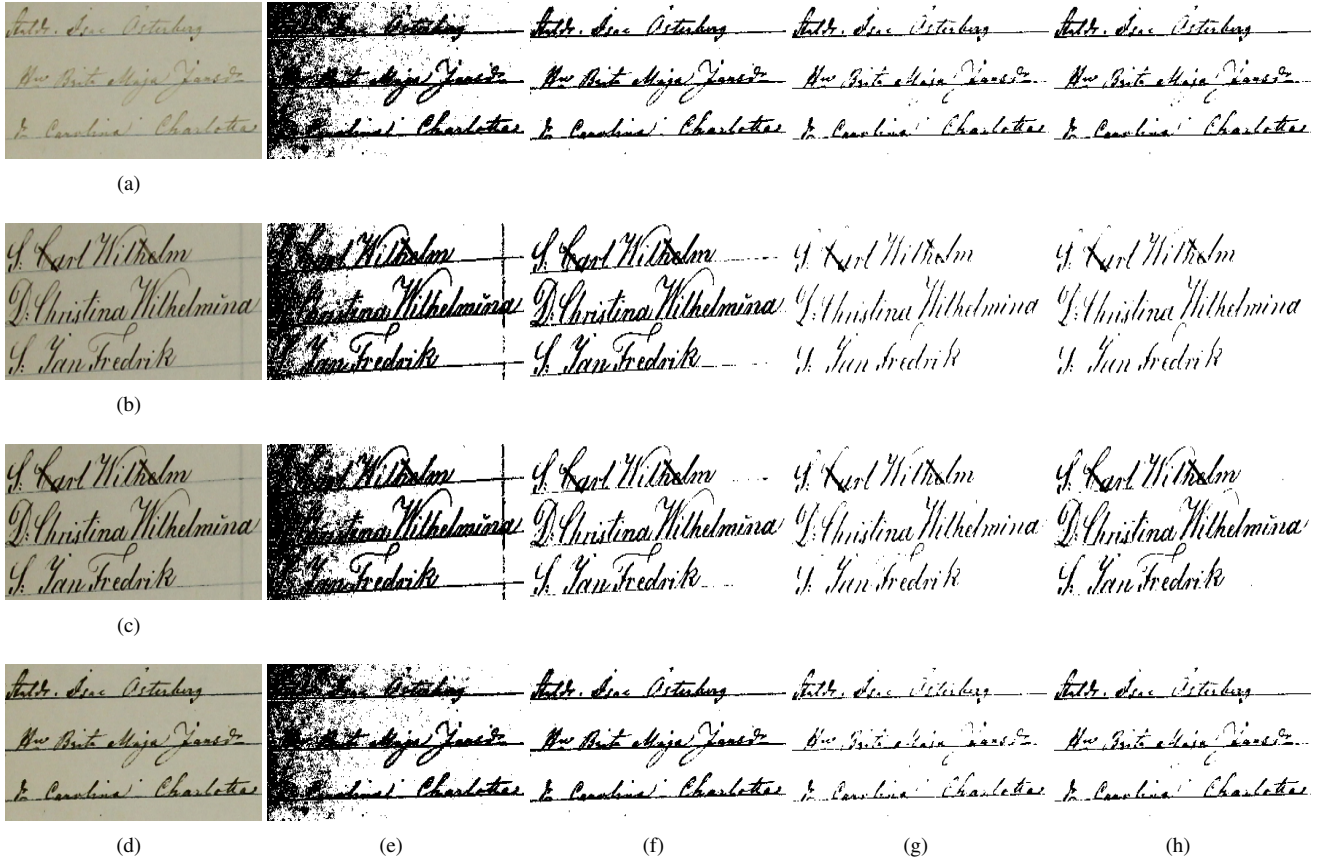 Isac Österberg
Brita Maja Jansdr
Carolina Charlotta
Isac Österberg
Brita Maja Jansdr
Carolina Charlotta
Isac Österberg
Brita Maja Jansdr
Carolina Charlotta
Isac Österberg
Brita Maja Jansdr
Carolina Charlotta
Isac Österberg
Brita Maja Jansdr
Carolina Charlotta
(a)
S. Carl Wilhelm
D. Christina Wilhelmina
S. Jan Fredrik
Carl Wilhelm
Christina Wilhelmina
Jan Fredrik
S. Carl Wilhelm
D. Christina Wilhelmina
S. Jan Fredrik
S. Carl Wilhelm
D. Christina Wilhelmina
S. Jan Fredrik
S. Carl Wilhelm
D. Christina Wilhelmina
S. Jan Fredrik
(b)
S. Carl Wilhelm
D. Christina Wilhelmina
S. Jan Fredrik
Carl Wilhelm
Christina Wilhelmina
Jan Fredrik
S. Carl Wilhelm
D. Christina Wilhelmina
S. Jan Fredrik
S. Carl Wilhelm
D. Christina Wilhelmina
S. Jan Fredrik
S. Carl Wilhelm
D. Christina Wilhelmina
S. Jan Fredrik
(c)
Isac Österberg
Brita Maja Jansdr
Carolina Charlotta
Isac Österberg
Brita Maja Jansdr
Carolina Charlotta
Isac Österberg
Brita Maja Jansdr
Carolina Charlotta
Isac Österberg
Brita Maja Jansdr
Carolina Charlotta
Isac Österberg
Brita Maja Jansdr
Carolina Charlotta
(d) (e) (f) (g) (h)